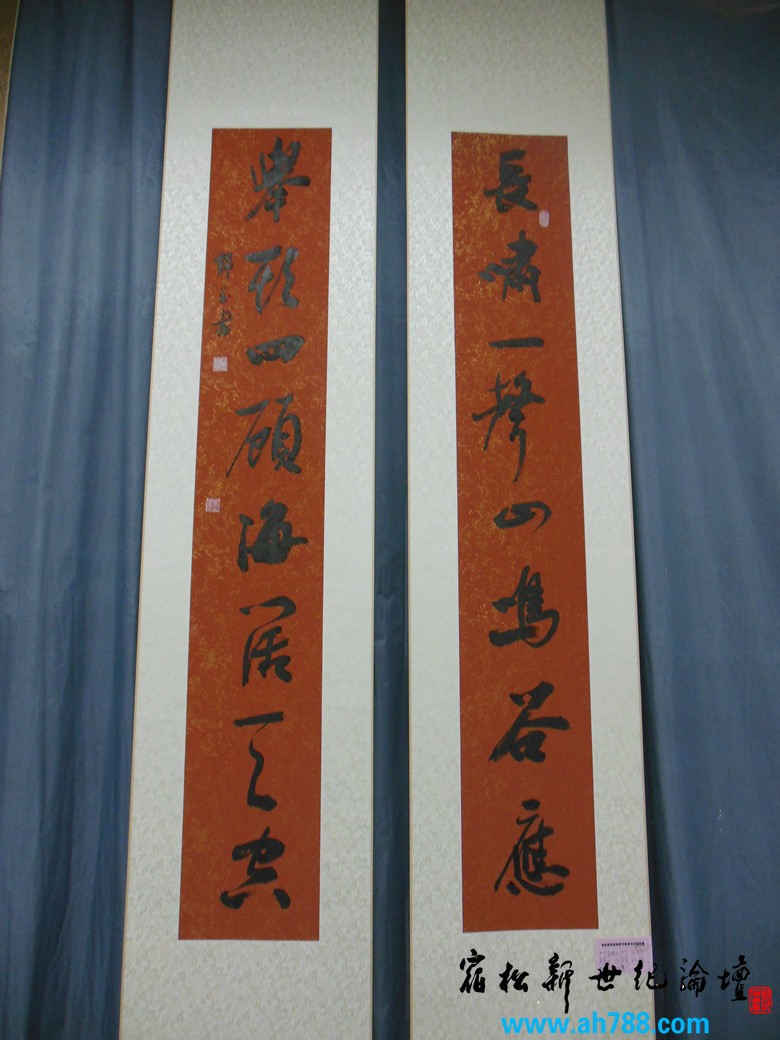 長嘯一聲山鳴谷應
舉頭四顧海闊天空
宿松新世纪論壇
www.ah788.com